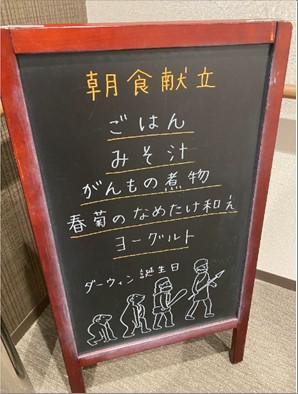 朝食献立
ごはん
みそ汁
がんもの煮物
春菊のなめたけ和え
ヨーグルト
ダーウィン誕生日